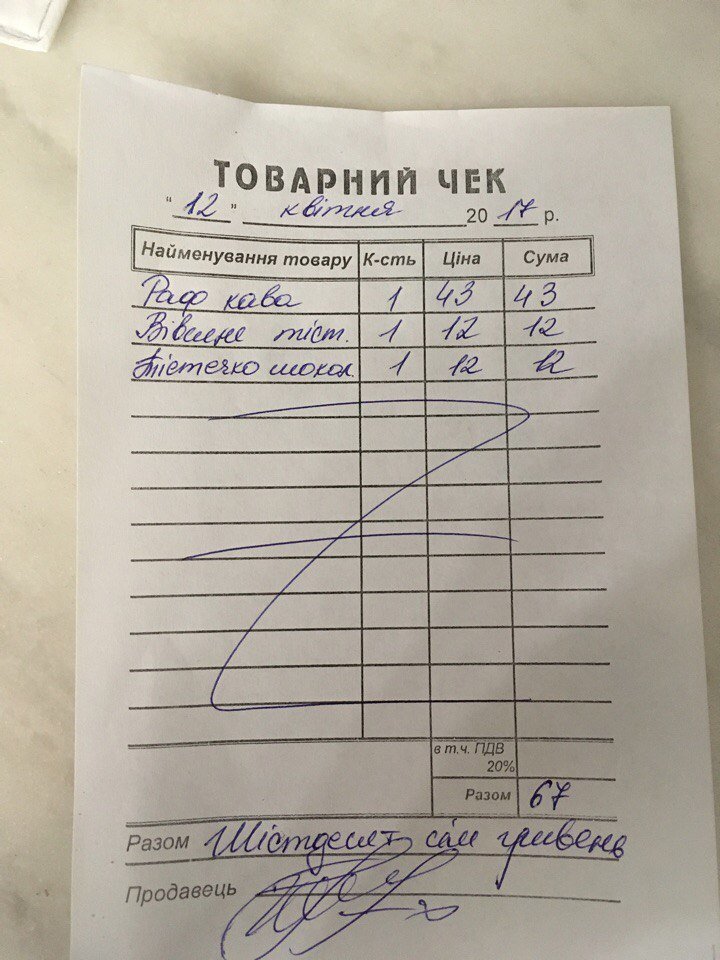 ТОВАРНИЙ ЧЕК
"12" квітня 2017 р.
Найменування товару К-сть Ціна Сума
Раф кава 1 43 43
Вівсяне тіст. 1 12 12
Тістечко шокол. 1 12 12
в т.ч. ПДВ
20%
Разом 67
Разом Шістдесят сім гривень
Продавець